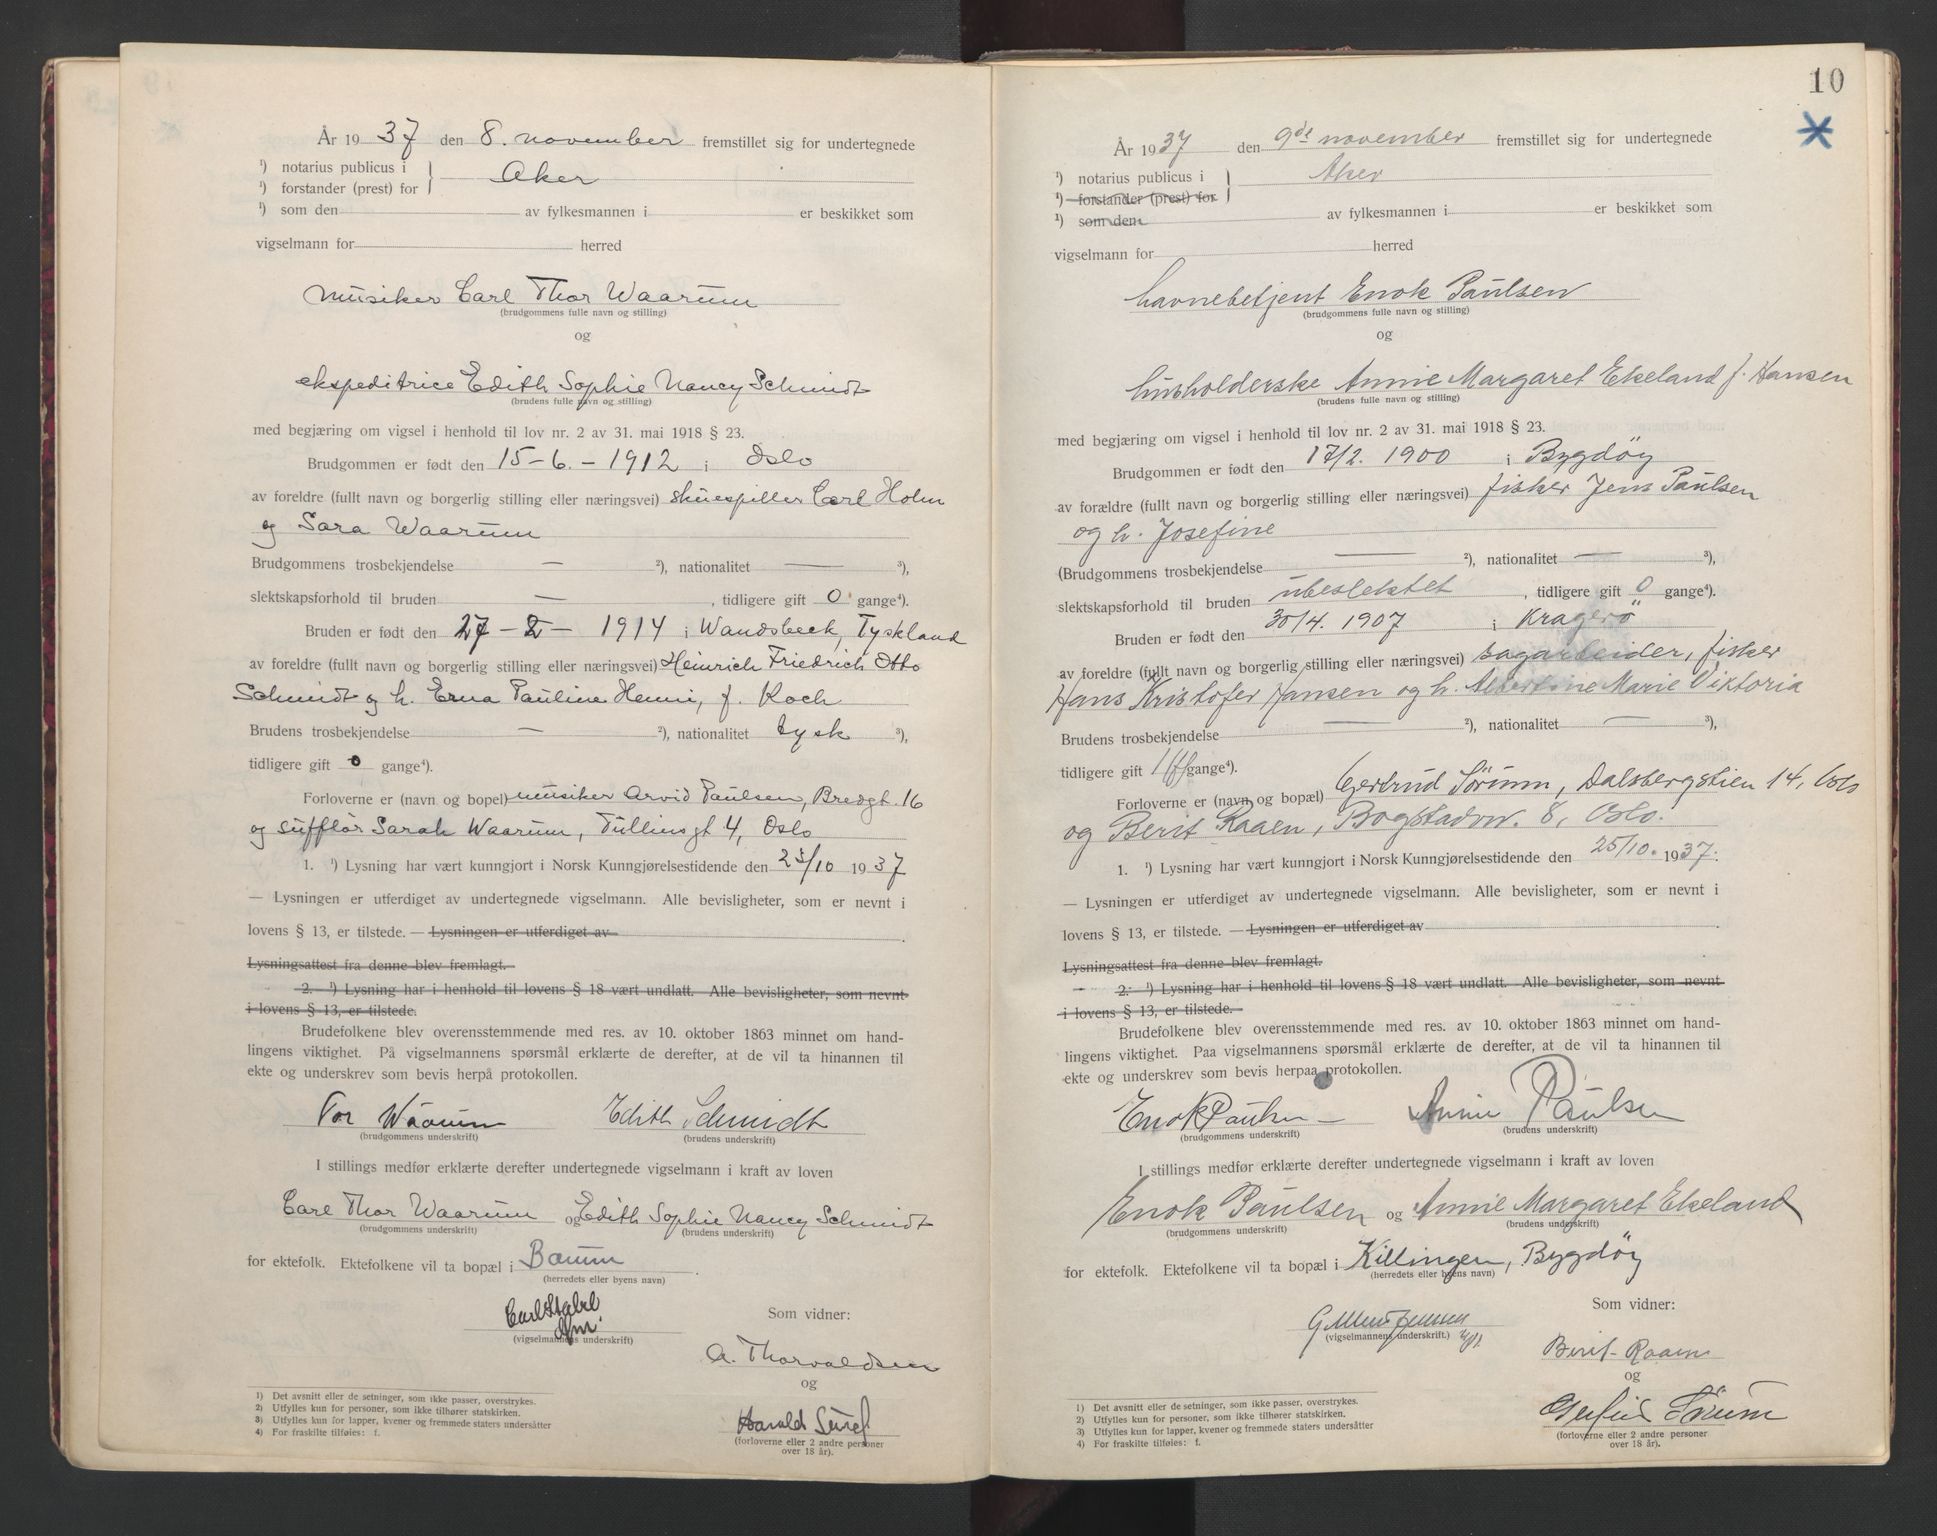 År 1937 den 8. november fremstillet sig for undertegnede
¹) notarius publicus i } Aker
¹) forstander (prest) for
¹) som den av fylkesmannen i er beskikket som
vigselmann for herred
musiker Carl Thor Waarum
(brudgommens fulle navn og stilling)
og
ekspeditrice Edith Sophie Nancy Schmidt
(brudens fulle navn og stilling)
med begjæring om vigsel i henhold til lov nr. 2 av 31. mai 1918 § 23.
Brudgommen er født den 15-6.-1912 i Oslo
av foreldre (fullt navn og borgerlig stilling eller næringsvei) skuespiller Carl Holm
og Sara Waarum
Brudgommens trosbekjendelse — ²), nationalitet — ³),
slektskapsforhold til bruden — , tidligere gift 0 gange⁴).
Bruden er født den 27-2-1914 i Wandsbeck, Tyskland
av foreldre (fullt navn og borgerlig stilling eller næringsvei) Heinrich Friedrich Otto
Schmidt og h. Erna Pauline Henni, f. Koch
Brudens trosbekjendelse — ²), nationalitet tysk ³),
tidligere gift 0 gange⁴).
Forloverne er (navn og bopel) musiker Arvid Paulsen, Bredgt. 16
og sufflør Sarah Waarum, Tullinsgt 4, Oslo
1. ¹) Lysning har vært kunngjort i Norsk Kunngjørelsestidende den 23/10 1937
— Lysningen er utferdiget av undertegnede vigselmann. Alle bevisligheter, som er nevnt i
lovens § 13, er tilstede. — Lysningen er utferdiget av
Lysningsattest fra denne blev fremlagt.
2. ¹) Lysning har i henhold til lovens § 18 vært undlatt. Alle bevisligheter, som nevnt
i lovens § 13, er tilstede.
Brudefolkene blev overensstemmende med res. av 10. oktober 1863 minnet om hand-
lingens viktighet. På vigselmannens spørsmål erklærte de derefter, at de vil ta hinannen til
ekte og underskrev som bevis herpå protokollen.
Tor Waarum Edith Schmidt
(brudgommens underskrift) (brudens underskrift)
I stillings medfør erklærte derefter undertegnede vigselmann i kraft av loven
Carl Thor Waarum og Edith Sophie Nancy Schmidt
(brudgommens underskrift) (brudens underskrift)
for ektefolk. Ektefolkene vil ta bopæl i Bærum
(herredets eller byens navn)
Carl Stabel
(vigselmannens underskrift)
Som vidner:
A. Thorvaldsen
og
Harald
(forloverne eller 2 andre personer
over 18 år).
1) Det avsnitt eller de setninger, som ikke passer, overstrykes.
2) Utfylles kun for personer, som ikke tilhører statskirken.
3) Utfylles kun for lapper, kvener og fremmede staters undersåtter
4) For fraskilte tilføies: f.
10
År 1937 den 9de november fremstillet sig for undertegnede
¹) notarius publicus i } Aker
¹) forstander (prest) for
¹) som den av fylkesmannen i er beskikket som
vigselmann for herred
havnebetjent Enok Paulsen
(brudgommens fulle navn og stilling)
og
husholderske Annie Margaret Ekeland f. Hansen
(brudens fulle navn og stilling)
med begjæring om vigsel i henhold til lov nr. 2 av 31. mai 1918 § 23.
Brudgommen er født den 17/2. 1900 i Bygdøy
av forældre (fullt navn og borgerlig stilling eller næringsvei) fisker Jens Paulsen
og h. Josefine
(Brudgommens trosbekjendelse — ²), nationalitet — ³),
slektskapsforhold til bruden ubeslektet , tidligere gift 0 gange⁴).
Bruden er født den 30/4. 1907 i Kragerö
av foreldre (fullt navn og borgerlig stilling eller næringsvei) sagarbeider, fisker
Hans Kristofer Hansen og h. Albertine Marie Viktoria
Brudens trosbekjendelse — ²), nationalitet — ³),
tidligere gift 1 gange⁴).
Forloverne er (navn og bopæl) Gertrud Sörum, Dalsbergstien 14, Oslo
og Berit Raaen, Bogstadvn. 8, Oslo.
1. ¹) Lysning har vært kunngjort i Norsk Kunngjørelsestidende den 25/10. 1937.
— Lysningen er utferdiget av undertegnede vigselmann. Alle bevisligheter, som er nevnt i
lovens § 13, er tilstede. — Lysningen er utferdiget av
Lysningsattest fra denne blev fremlagt.
2. ¹) Lysning har i henhold til lovens § 18 vært undlatt. Alle bevisligheter, som nevnt
i lovens § 13, er tilstede.
Brudefolkene blev overensstemmende med res. av 10. oktober 1863 minnet om hand-
lingens viktighet. Paa vigselmannens spørsmål erklærte de derefter, at de vil ta hinannen til
ekte og underskrev som bevis herpaa protokollen.
Enok Paulsen Annie Paulsen
(brudgommens underskrift) (brudens underskrift)
I stillings medfør erklærte derefter undertegnede vigselmann i kraft av loven
Enok Paulsen og Annie Margaret Ekeland
(brudgommens underskrift) (brudens underskrift)
for ektefolk. Ektefolkene vil ta bopæl i Killingen, Bygdöy
(herredets eller byens navn)
(vigselmannens underskrift.)
Som vidner:
Berit Raaen
og
Sörum
(forloverne eller 2 andre personer
over 18 år).
1) Det avsnitt eller de setninger, som ikke passer, overstrykes.
2) Utfylles kun for personer, som ikke tilhører statskirken.
3) Utfylles kun for lapper, kvener og fremmede staters undersåtter
4) For fraskilte tilføies: f.